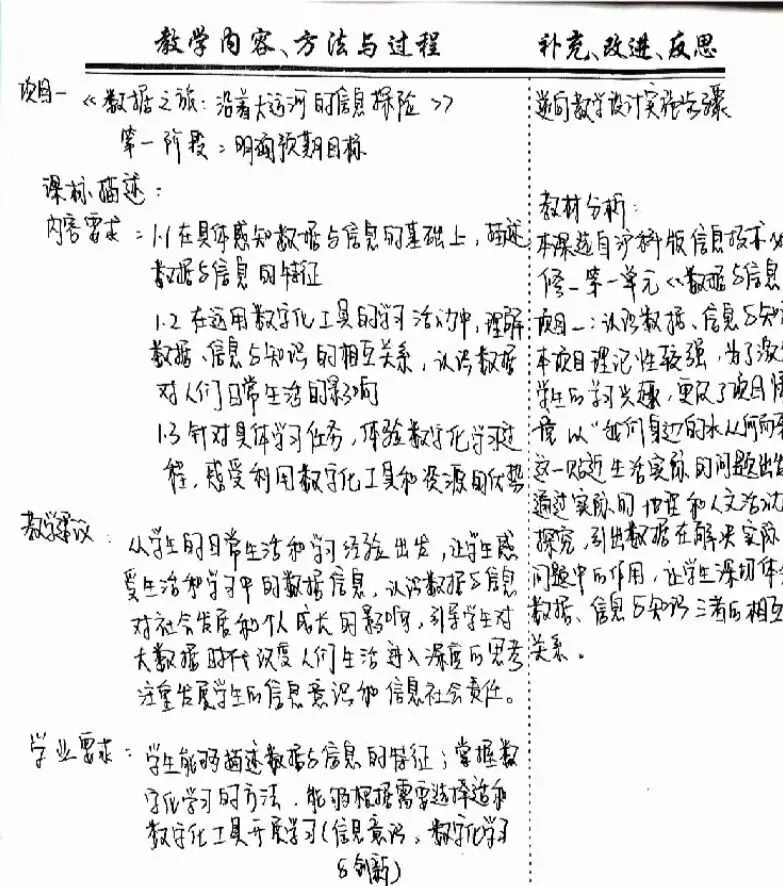 教学内容、方法与过程
补充、改进、反思
项目一《数据之旅:沿着大运河的信息探险》
第一阶段:明确预期目标
课标描述:
内容要求:1.1在具体感知数据与信息的基础上,描述
数据与信息的特征
1.2在运用数字化工具的学习活动中,理解
数据、信息与知识的相互关系,认识数据
对人们日常生活的影响
1.3针对具体学习任务,体验数字化学习过
程,感受利用数字化工具和资源的优势
教学建议:从学生的日常生活和学习经验出发,让学生感
受生活和学习中的数据信息,认识数据与信息
对社会发展和个人成长的影响,引导学生对
大数据时代改变人们生活进入深度的思考
注重发展学生的信息意识和信息社会责任。
学业要求:学生能够描述数据与信息的特征;掌握数
字化学习的方法,能够根据需要选择适和
数字化工具开展学习(信息意识、数字化学习
与创新)
逆向教学设计实施步骤
教材分析:
本课选自沪科版信息技术必
修一第一单元《数据与信息
项目一:认识数据、信息与知识
本项目理论性较强,为了激
学生的学习兴趣,更改了项目情
境 以"我们身边的水从何而来
这一贴近生活实际的问题出发
通过实际的地理和人文活动
探究,引出数据在解决实际
问题中的作用,让学生深切体会
数据、信息与知识三者的相互
关系。